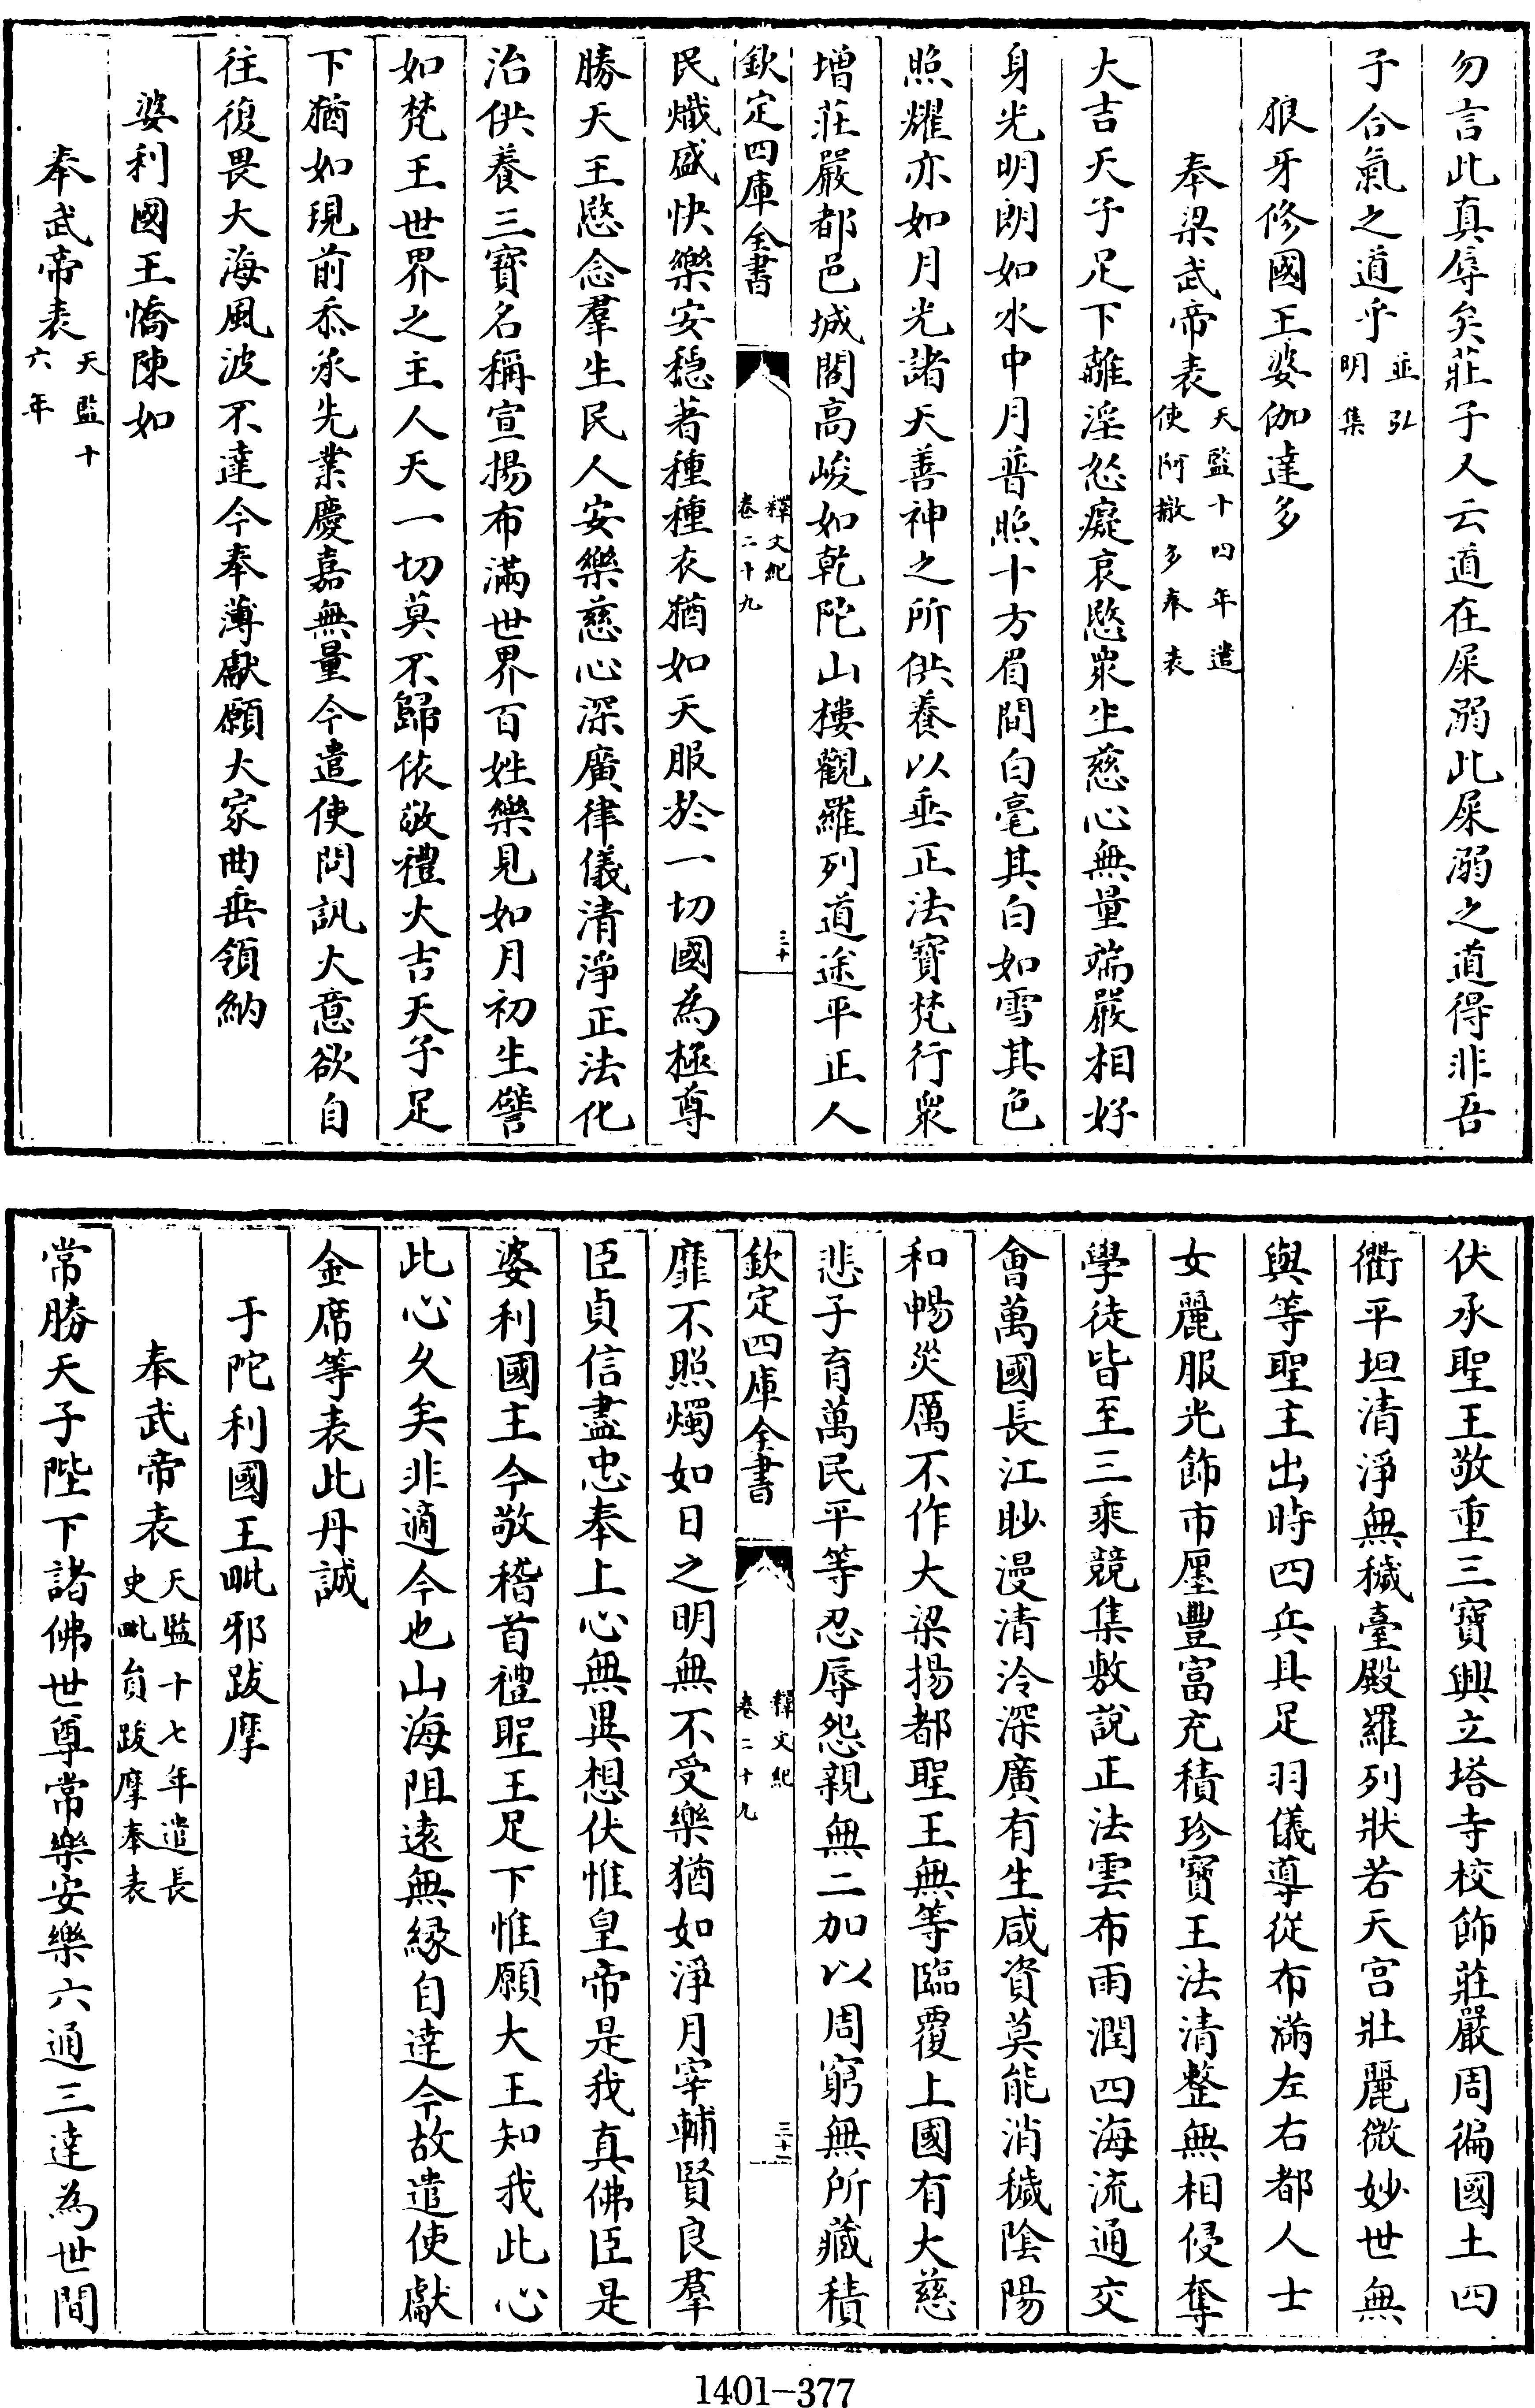 勿言此真辱矣莊子又云道在屎溺此屎溺之道得非吾
子合氣之道乎並弘明集
狼牙修國王婆伽達多
奉梁武帝表天監十四年遣使阿撤多奉表
大吉天子足下離淫怒癡哀愍衆生慈心無量端嚴相好
身光明朗如水中月普照十方眉間白毫其白如雪其色
照耀亦如月光諸天善神之所供養以垂正法寶梵行衆
增莊嚴都邑城閣高峻如乾陀山樓觀羅列道途平正人
欽定四庫全書 釋文紀卷二十九 三十
民熾盛快樂安穩著種種衣猶如天服於一切國為極尊
勝天王愍念羣生民人安樂慈心深廣律儀清淨正法化
治供養三寶名稱宣揚布滿世界百姓樂見如月初生譬
如梵王世界之主人天一切莫不歸依敬禮大吉天子足
下猶如現前忝承先業慶嘉無量今遣使問訊大意欲自
往復畏大海風波不達今奉薄獻願大家曲垂領納
婆利國王憍陳如
奉武帝表天監十六年
伏承聖王敬重三寶興立塔寺校飾莊嚴周徧國土四
衢平坦清淨無穢臺殿羅列狀若天宫壯麗微妙世無
與等聖主出時四兵具足羽儀導從布滿左右都人士
女麗服光飾市廛豐富充積珍寶王法清整無相侵奪
學徒皆至三乘競集敷說正法雲布雨潤四海流通交
會萬國長江眇漫清泠深廣有生咸資莫能消穢陰陽
和暢災厲不作大梁揚都聖王無等臨覆上國有大慈
悲子育萬民平等忍辱怨親無二加以周窮無所藏積
欽定四庫全書 釋文紀卷二十九 三十一
靡不照燭如日之明無不受樂猶如淨月宰輔賢良羣
臣貞信盡忠奉上心無異想伏惟皇帝是我真佛臣是
婆利國主今敬稽首禮聖王足下惟願大王知我此心
此心久矣非適今也山海阻遠無緣自達今故遣使獻
金席等表此丹誠
于陀利國王毗邪跋摩
奉武帝表天監十七年遣長史毗員跋摩奉表
常勝天子陛下諸佛世尊常樂安樂六通三達為世間
1401-377